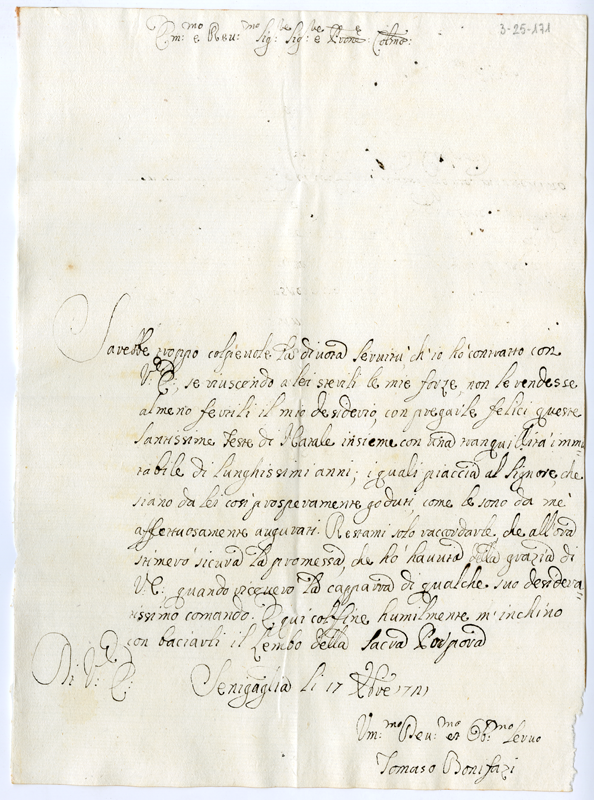 3-25-171
E.mo e Reu.mo Sig.re Sig.re e Pron.e Col.mo
Sarebbe troppo colpeuole la diuota seruitù ch'io hò contratto con
V.E., se riuscendo a lei sterili le mie forze, non le rendesse
almeno fertili il mio desiderio, con pregarle felici queste
Santissime Feste di Natale insieme con una tranquillità immu=
tabile di lunghissimi anni; i quali piaccia al Signore, che
siano da lei così prosperamente goduti, come le sono da mè
affettuosamente augurati. Restami solo raccordarle, che all'ora
stimerò sicura la promessa, che hò hauuta della grazia di
V.E., quando riceuerò la capparra di qualche suo desidera=
tissimo comando. E qui col fine humilmente m'inchino
con baciarli il Lembo della Sacra Porpora
Di V.E.
Senigaglia li 17 Xbre
Um.mo Deu.mo et Ob.mo Seruo
Tomaso Bonifazi